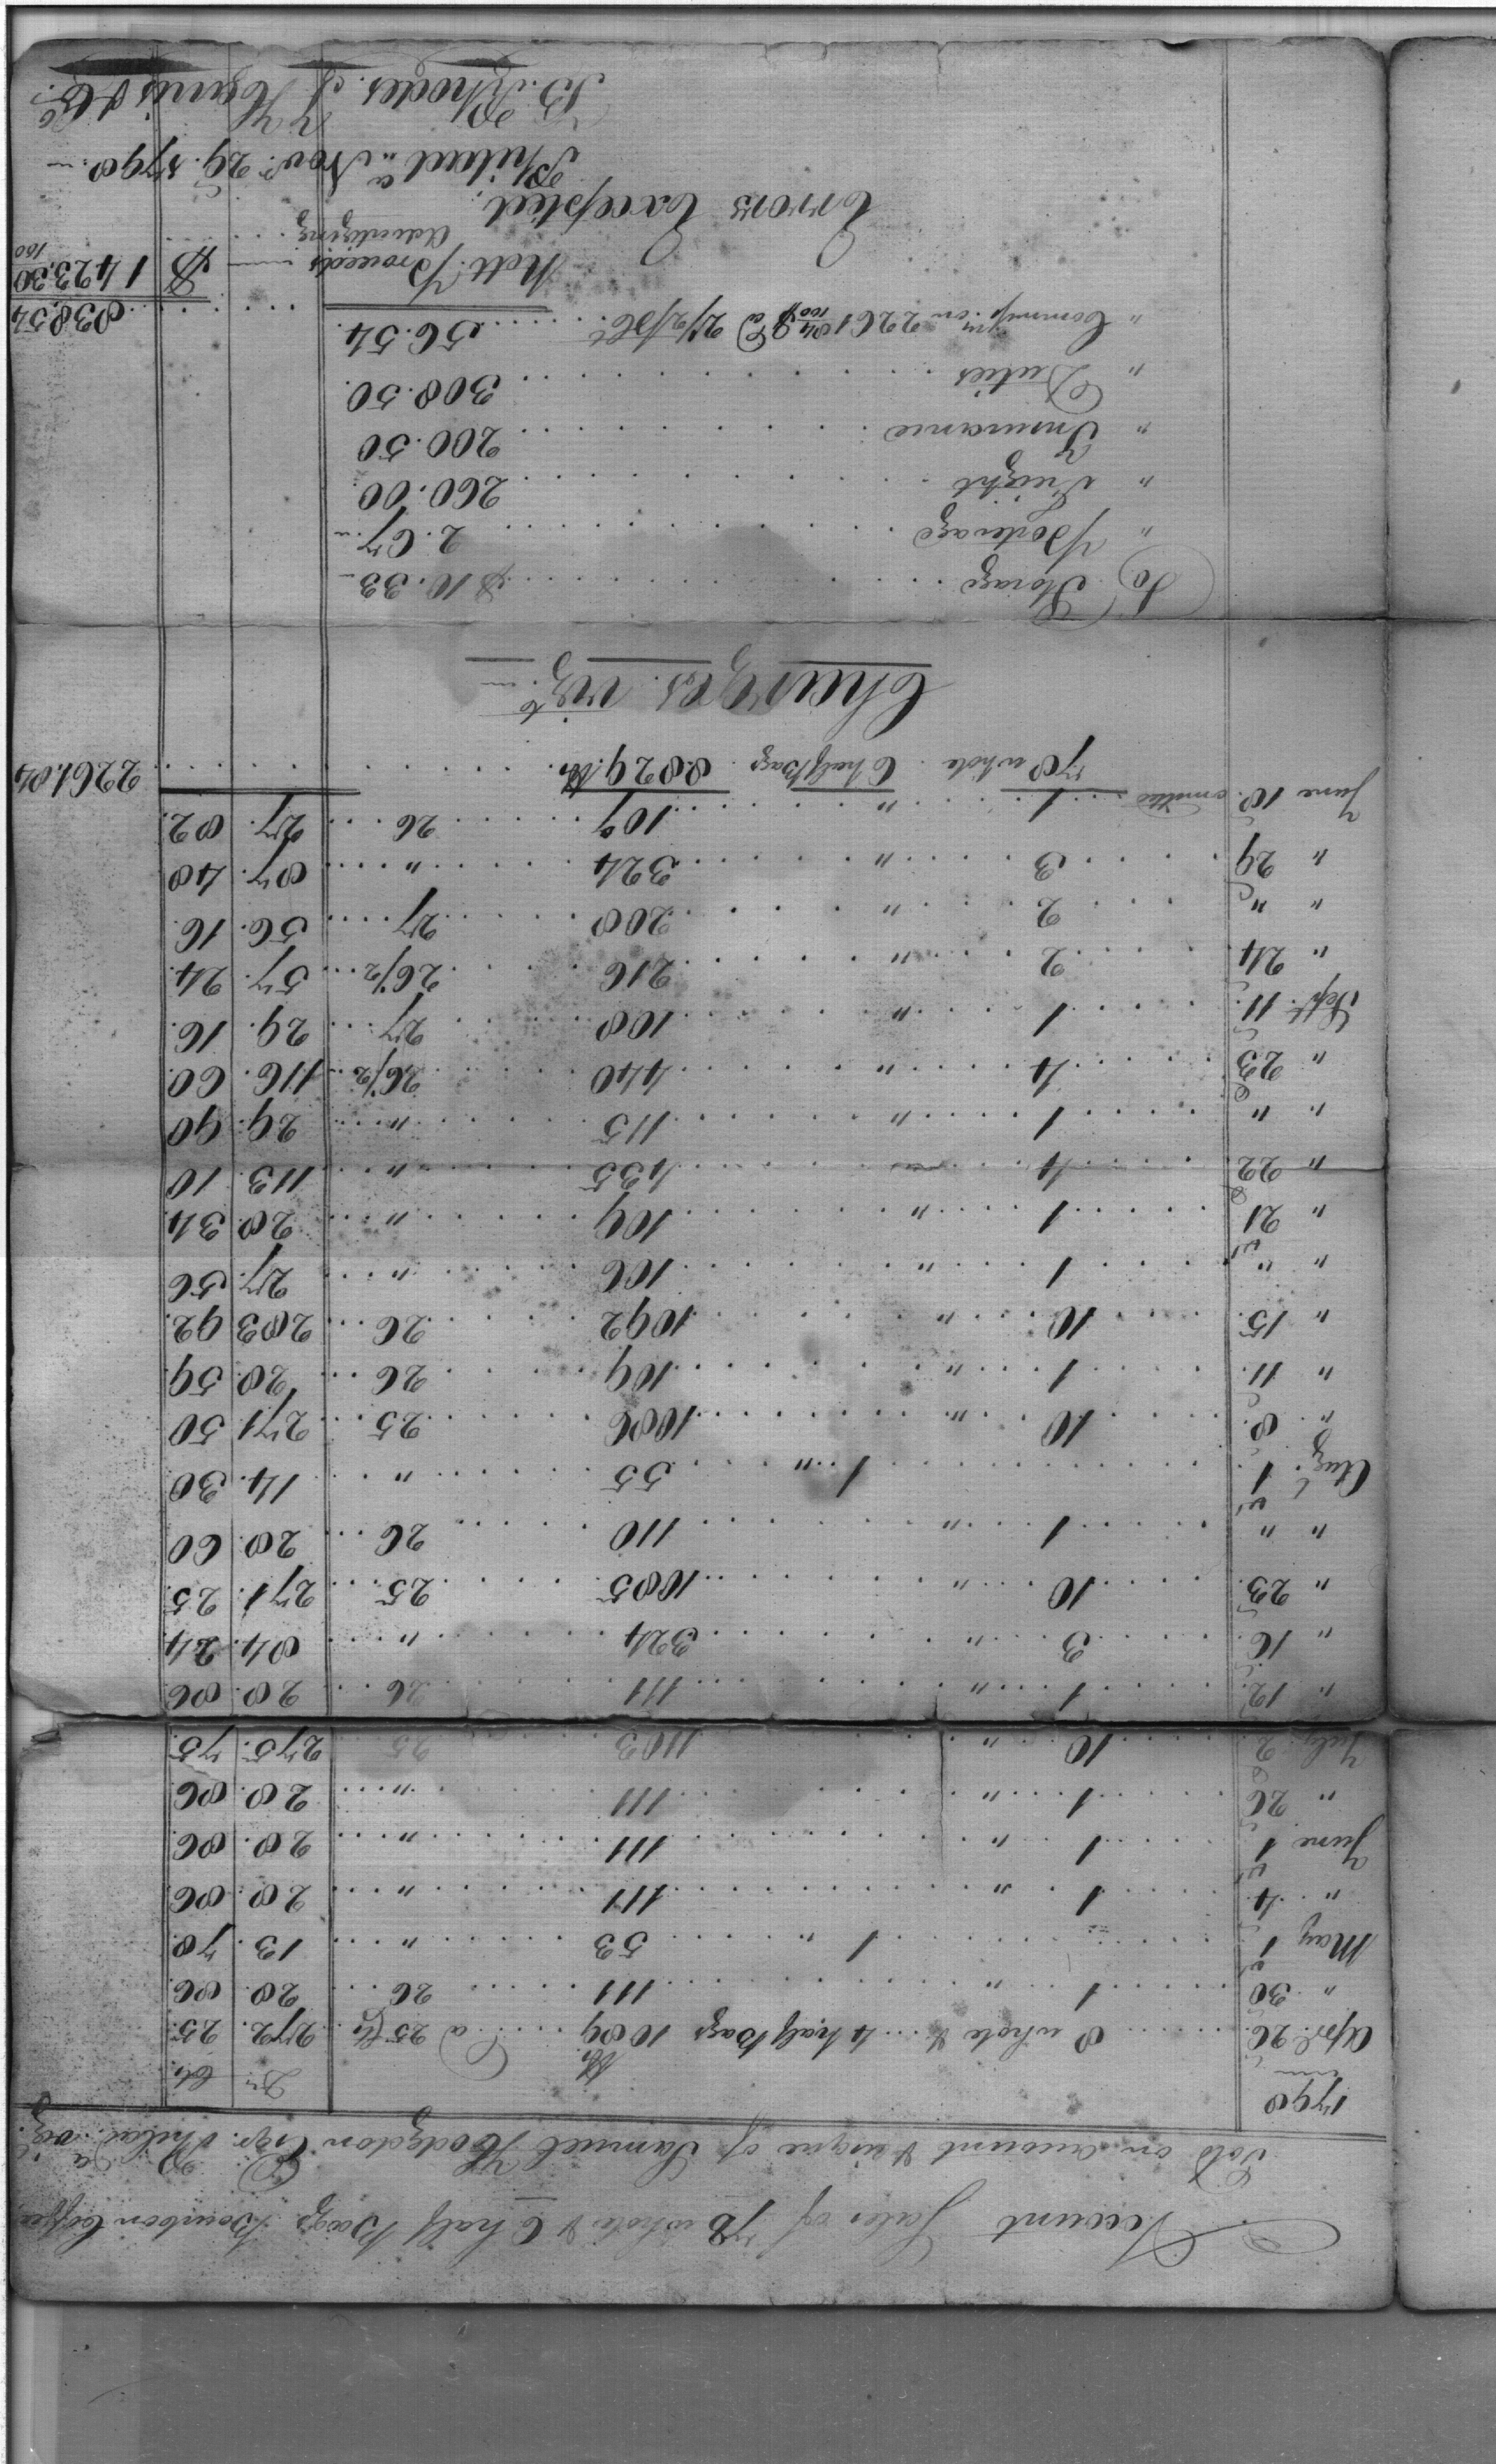 Account Sales of 78 whole & 6 half Bags Bourbon Coffee
Sold on account & risque of Samuel Hodgdon Esqr. Philada. vizt.
1798 lbs. Dr. Cts.
Apl. 26 8 whole & 4 half Bags 1089 @ 25 Cts 272. 25.
" 30 1 " 111 26 28. 86
May 1 1 " 53 " 13. 78
" 4 1 " 111 " 28. 86
June 1 1 " 111 " 28. 86
" 26 1 " 111 " 28. 86
July 2 10 " 1103 25 275. 75
" 12 1 " 111 26 28. 86
" 16 3 " 324 " 84. 24.
" 23 10 " 1085 25 271. 25
" " 1 " 110 26 28 60
Aug. 1 1 " 55 " 14. 30
" 8 10 " 1086 25 271 50
" 11 1 " 109 26 28. 59.
" 15 10 " 1092 26 283 92.
" " 1 " 106 " 27. 56
" 21 1 " 109 " 28. 34.
" 22 4 " 435 " 113. 10
" " 1 " 115 " 29. 90
" 23 4 " 440 26 1/2 116. 60
Sept. 11 1 " 108 27 29. 16.
" 24 2 " 216 26 1/2 57. 24.
" " 2 " 208 27 56. 16
" 29 3 " 324 " 87. 48
June 18 omitted 1 " 107 26 27. 82.
78 whole 6 half Bags 8829 lbs 2261.84
Charges vizt.
To Storage $ 10. 33
" Porterage 2. 67
" Freight 260. 00
" Insurance 200. 50
" Duties 308. 50.
" Commissn. on 2261 84/100 $ @ 2 1/2 pCt 56. 54. 838.54
Nett. Proceeds $ 1423.30/100
Advertizing
Errors Excepted.
Philada. Nov. 29. 1798
B. Rhodes. f Harris & Co.